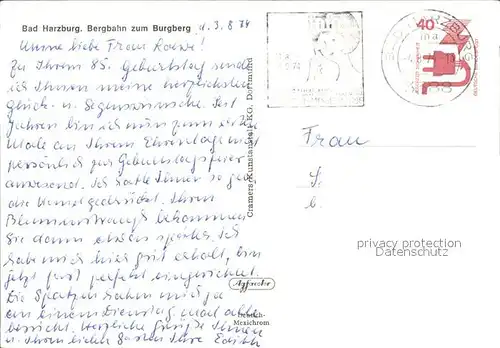 Bad Harzburg. Bergbahn zum Burgberg d. 3. 8. 74
Meine liebe Frau
Zu Ihrem 85. Geburtstag sende
ich Ihnen meine herzlichsten
Glück- u. Segenswünsche. Seit
Jahren bin ich nun zum ersten
Male an Ihrem Ehrentage nicht
persönlich zur Geburtstagsfeier
anwesend. Ich hätte Ihnen so gern
die Hand gedrückt. Ihren
Blumenstrauß bekommen
Sie dann etwas später. Ich
habe mich hier gut erholt, bin
jetzt fast perfekt eingerichtet.
Die Spatzen haben mich ja
an einem Dienstag mal
besucht. Herzliche Grüße Ihnen
u. Ihren lieben Ihre Edith
Cramers Kunstanstalt KG, Dortmund
Mexichrom
40
BAD HARZBURG
Frau
privacy protection
Datenschutz